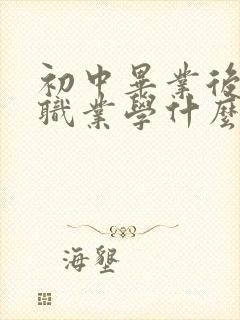 初中畢業後
職業學什麼
海墾